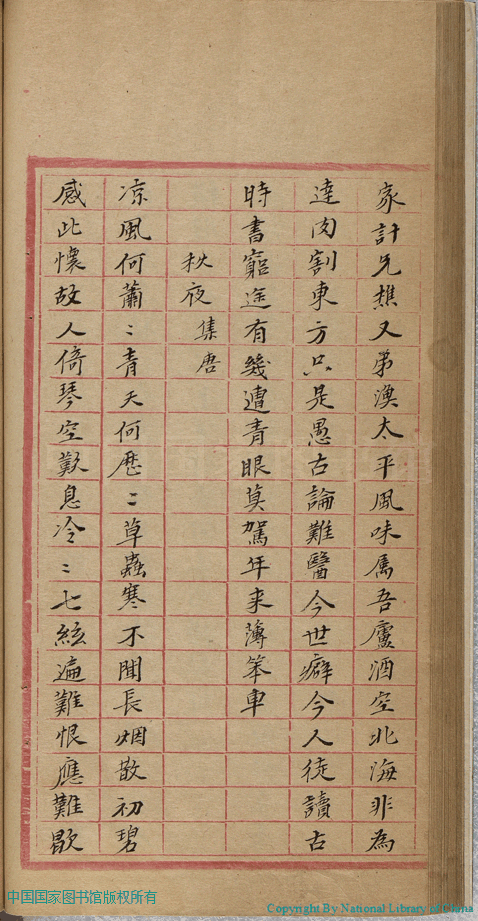 家計兄樵又弟漁太平風味属吾廬酒空北海非為
達肉割東方只是愚古論難醫今世癖今人徒讀古
時書窮途有幾遭青眼莫駕年来薄笨車
秋夜集唐
凉風何蕭〻青天何歷〻草蟲寒不聞長烟散初碧
感此懷故人倚琴空歎息冷〻七絃遍難恨應難歇
中国国家图书馆版权所有
Copyright By National Library of China